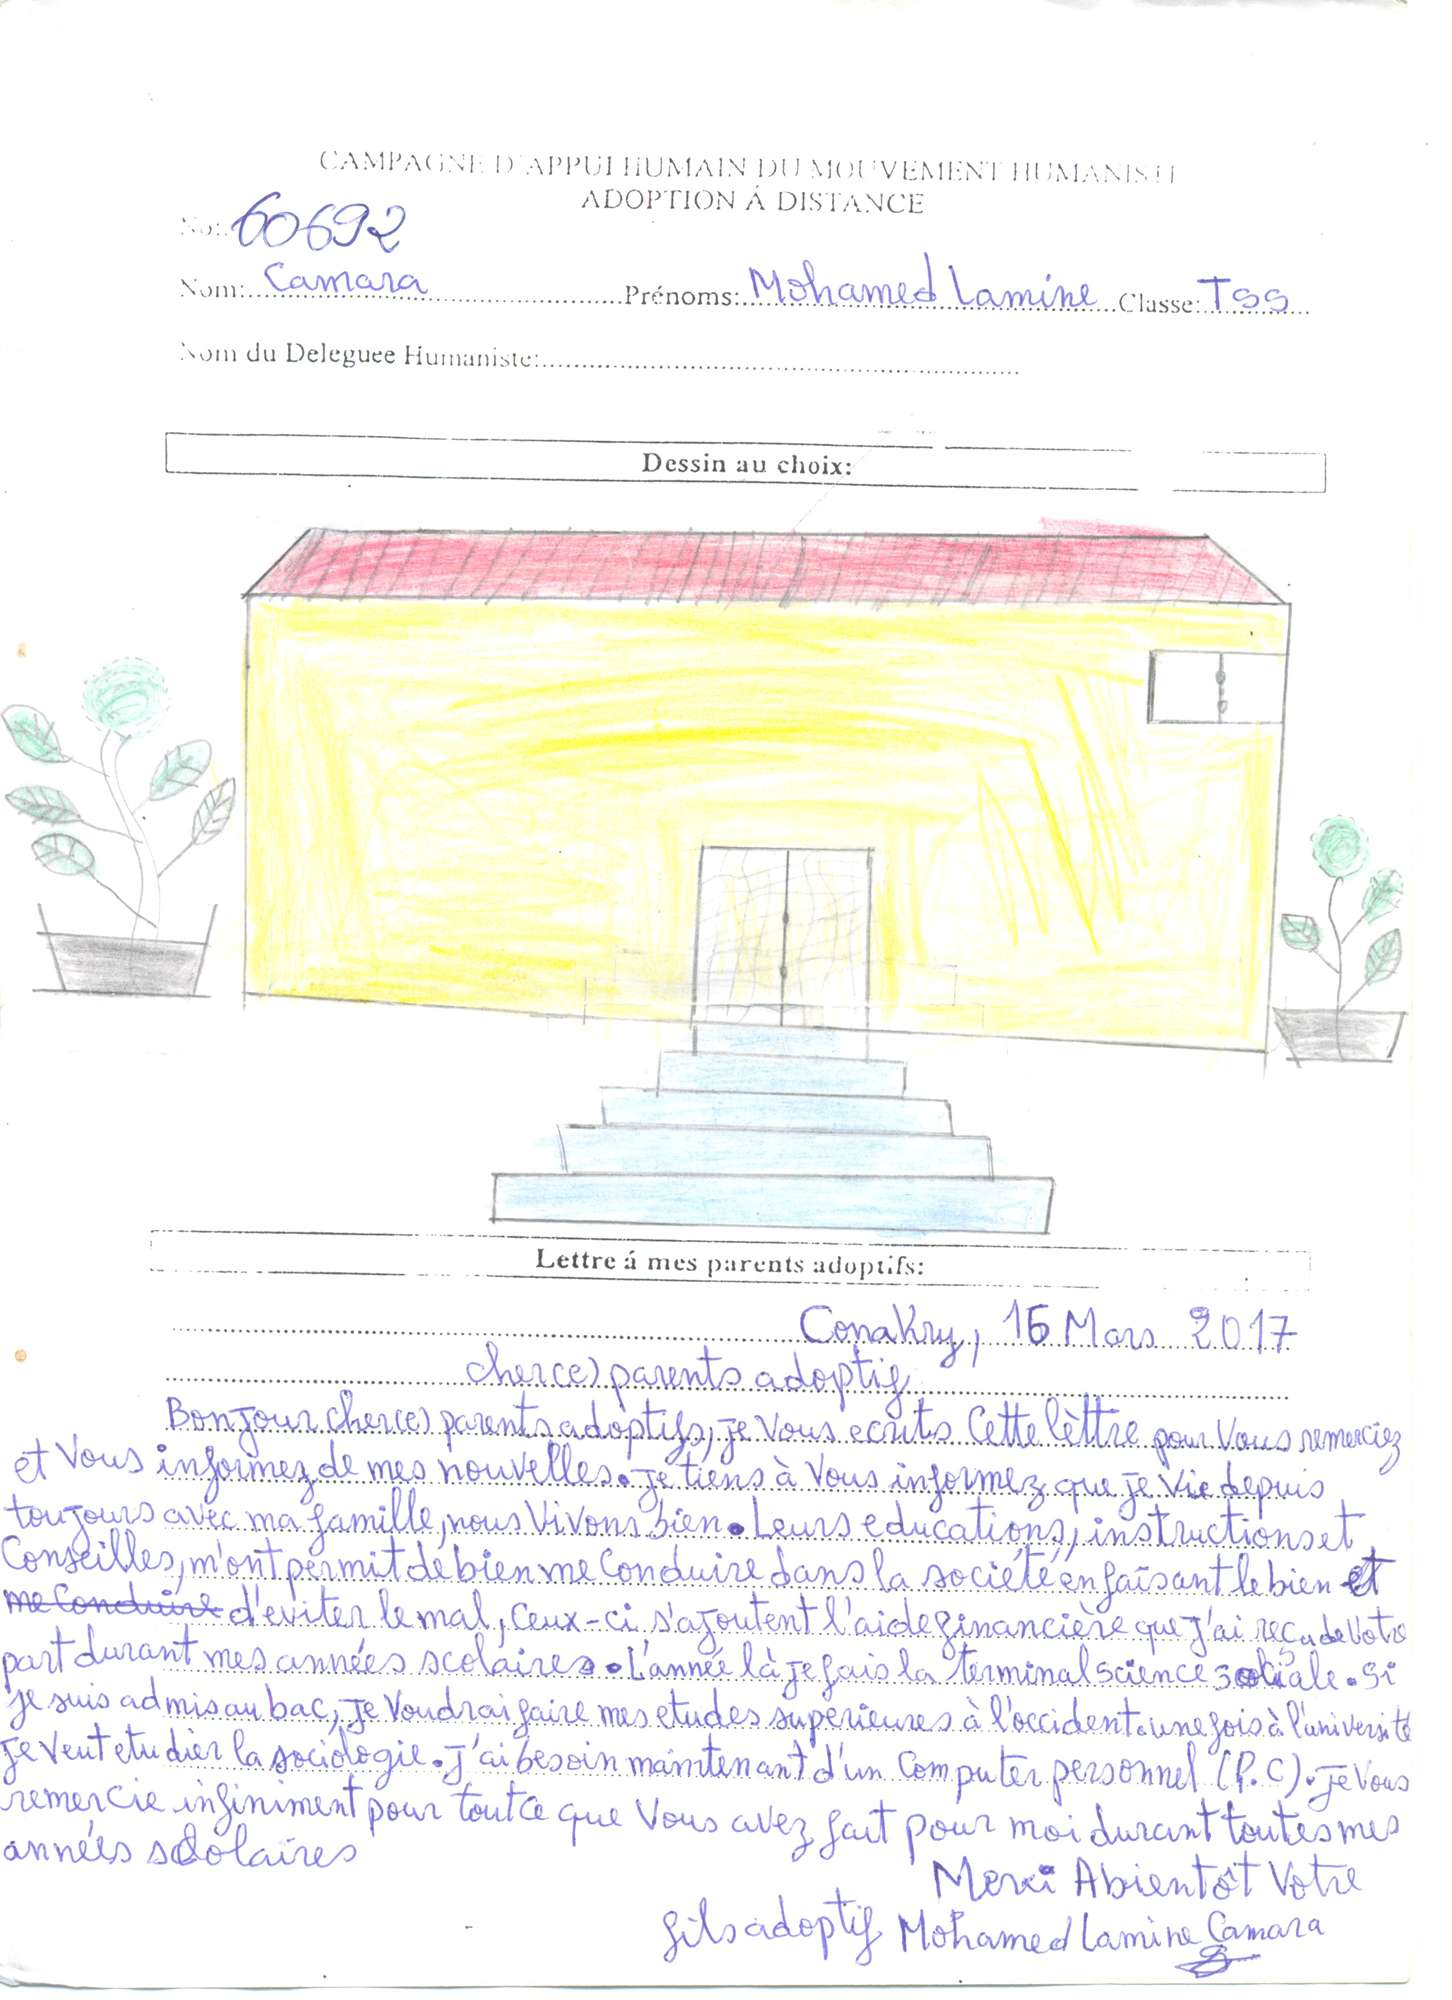 CAMPAGNE D'APPUI HUMAIN DU MOUVEMENT HUMANISTE
ADOPTION Á DISTANCE
No: 60692
Nom: Camara Prénoms: Mohamed Lamine Classe: TSS
Nom du Deleguee Humaniste:
Dessin au choix:
Lettre á mes parents adoptifs:
Conakry, 16 Mars 2017
cher(e) parents adoptif
Bonjour cher(e) parents adoptifs, je vous ecrits cette lèttre pour vous remerciez
et vous informez de mes nouvelles. je tiens à vous informez que je vie depuis
toujours avec ma famille, nous vivons bien. Leurs educations, instructions et
Conseilles, m'ont permit de bien me conduire dans la société en faisant le bien et
me conduire d'eviter le mal, ceux-ci s'ajoutent l'aide financière que j'ai reçu de votre
part durant mes années scolaires. L'année là je fais la terminal science sociale. si
je suis admis au bac, je voudrai faire mes etudes superieures à l'occident. une fois à l'université
je veut etudier la sociologie. j'ai besoin maintenant d'un computer personnel (P.C). je vous
remercie infiniment pour tout ce que vous avez fait pour moi durant toutes mes
années scolaires
Merci Abientôt Votre
fils adoptif Mohamed Lamine Camara